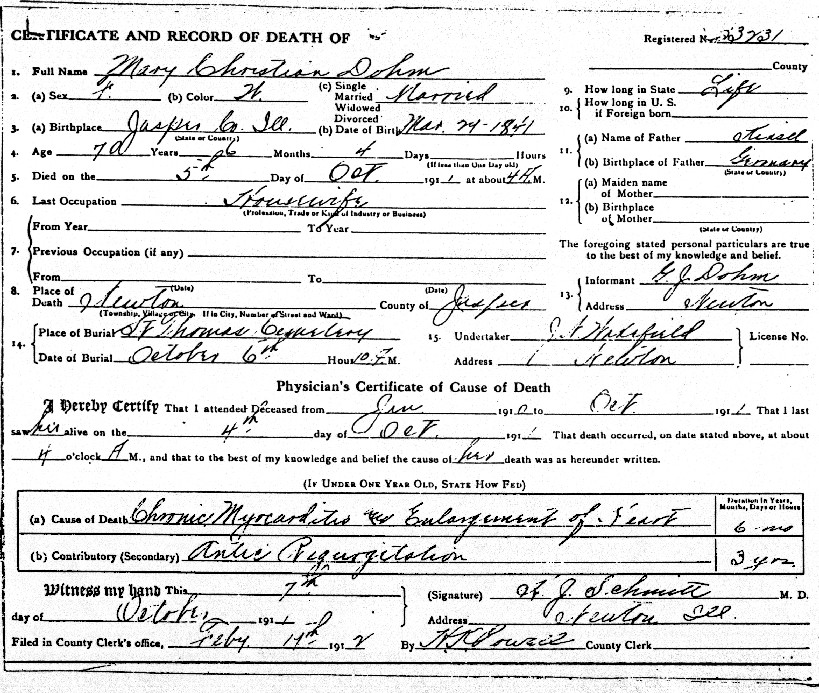 CERTIFICATE AND RECORD OF DEATH OF
Registered No. 3231
County
1. Full Name Mary Christian Dohm
2. (a) Sex F. (b) Color W. (c) Single Married Widowed Divorced Married
3. (a) Birthplace Jasper Co. Ill. (b) Date of Birth Mar. 29-1841
(State or Country)
4. Age 70 Years 6 Months 4 Days Hours
(If less than One Day old)
5. Died on the 5th Day of Oct. 1911 at about 4 A.M.
6. Last Occupation Housewife
(Profession, Trade or Kind of Industry or Business)
7. From Year To Year
Previous Occupation (if any)
From To
(Date) (Date)
8. Place of Death Newton County of Jasper
(Township, Village or City. If in City, Number of Street and Ward)
9. How long in State Life
10. How long in U. S. if Foreign born
11. (a) Name of Father
(b) Birthplace of Father Germany
(State or Country)
12. (a) Maiden name of Mother
(b) Birthplace of Mother
(State or Country)
The foregoing stated personal particulars are true
to the best of my knowledge and belief.
13. Informant G. J. Dohm
Address Newton
14. Place of Burial St Thomas Cemetery
Date of Burial October 6th Hour 10 A.M.
15. Undertaker License No.
Address Newton
Physician's Certificate of Cause of Death
I Hereby Certify That I attended Deceased from Jan 1910 to Oct. 1911 That I last
saw her alive on the 4th day of Oct. 1911 That death occurred, on date stated above, at about
4 o'clock A M., and that to the best of my knowledge and belief the cause of her death was as hereunder written.
(If Under One Year Old, State How Fed)
Duration in Years, Months, Days or Hours
(a) Cause of Death Chronic Myocarditis Enlargement of Heart 6 mo
(b) Contributory (Secondary) Aortic Regurgitation 3 yrs
Witness my hand This 7th
day of October 1911
(Signature) J. Schmitt M. D.
Address Newton Ill.
Filed in County Clerk's office, Feby. 14th 1912 By County Clerk